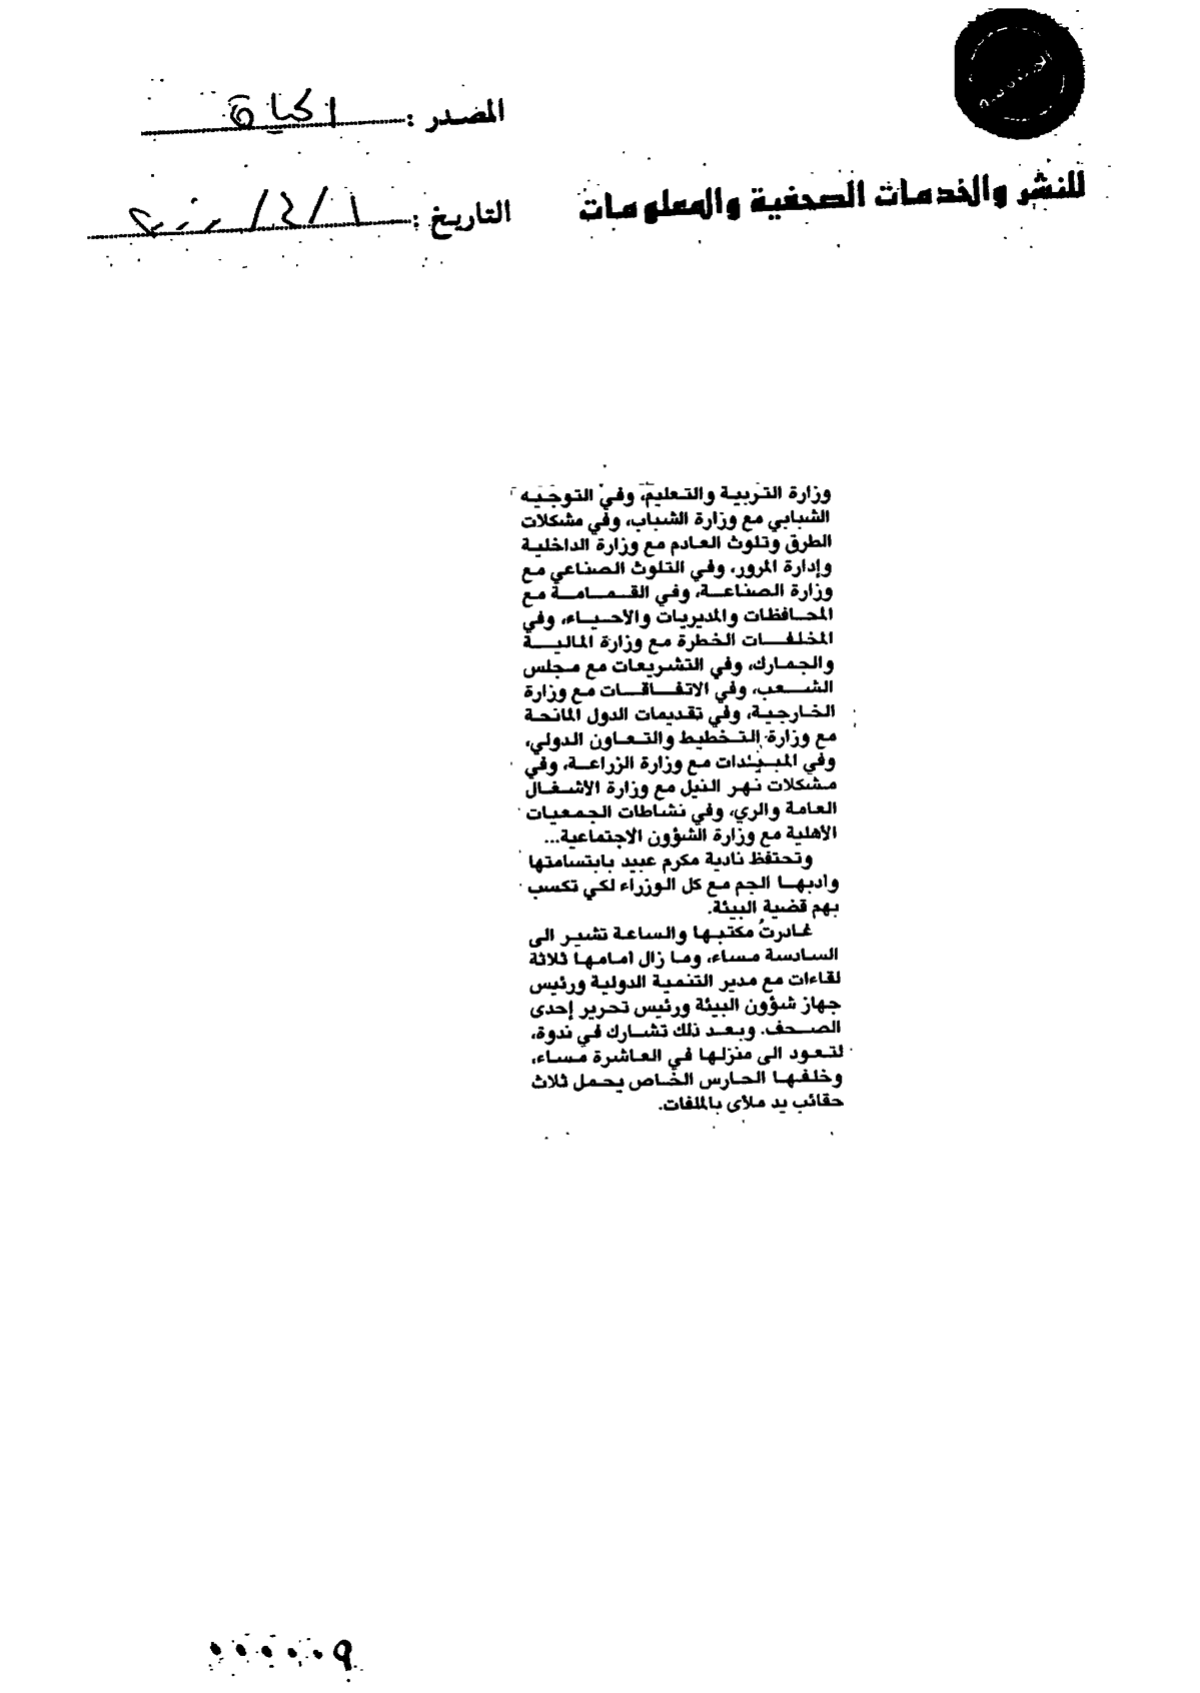 المصدر : الحياة
للنشر والخدمات الصحفية والمعلومات
التاريخ : ١/٤/٢٠٠٠
وزارة التربية والتعليم، وفي التوجيه
الشبابي مع وزارة الشباب، وفي مشكلات
الطرق وتلوث العادم مع وزارة الداخلية
وإدارة المرور، وفي التلوث الصناعي مع
وزارة الصناعة، وفي القمامة مع
المحافظات والمديريات والأحياء، وفي
المخلفات الخطرة مع وزارة المالية
والجمارك، وفي التشريعات مع مجلس
الشعب، وفي الاتفاقات مع وزارة
الخارجية، وفي تقديمات الدول المانحة
مع وزارة التخطيط والتعاون الدولي،
وفي المبيدات مع وزارة الزراعة، وفي
مشكلات نهر النيل مع وزارة الأشغال
العامة والري، وفي نشاطات الجمعيات
الأهلية مع وزارة الشؤون الاجتماعية...
وتحتفظ نادية مكرم عبيد بابتسامتها
وأدبها الجم مع كل الوزراء لكي تكسب
بهم قضية البيئة.
غادرتُ مكتبها والساعة تشير الى
السادسة مساء، وما زال أمامها ثلاثة
لقاءات مع مدير التنمية الدولية ورئيس
جهاز شؤون البيئة ورئيس تحرير إحدى
الصحف. وبعد ذلك تشارك في ندوة،
لتعود الى منزلها في العاشرة مساء،
وخلفها الحارس الخاص يحمل ثلاث
حقائب يد ملأى بالملفات.
٠٠٠٠٠٩